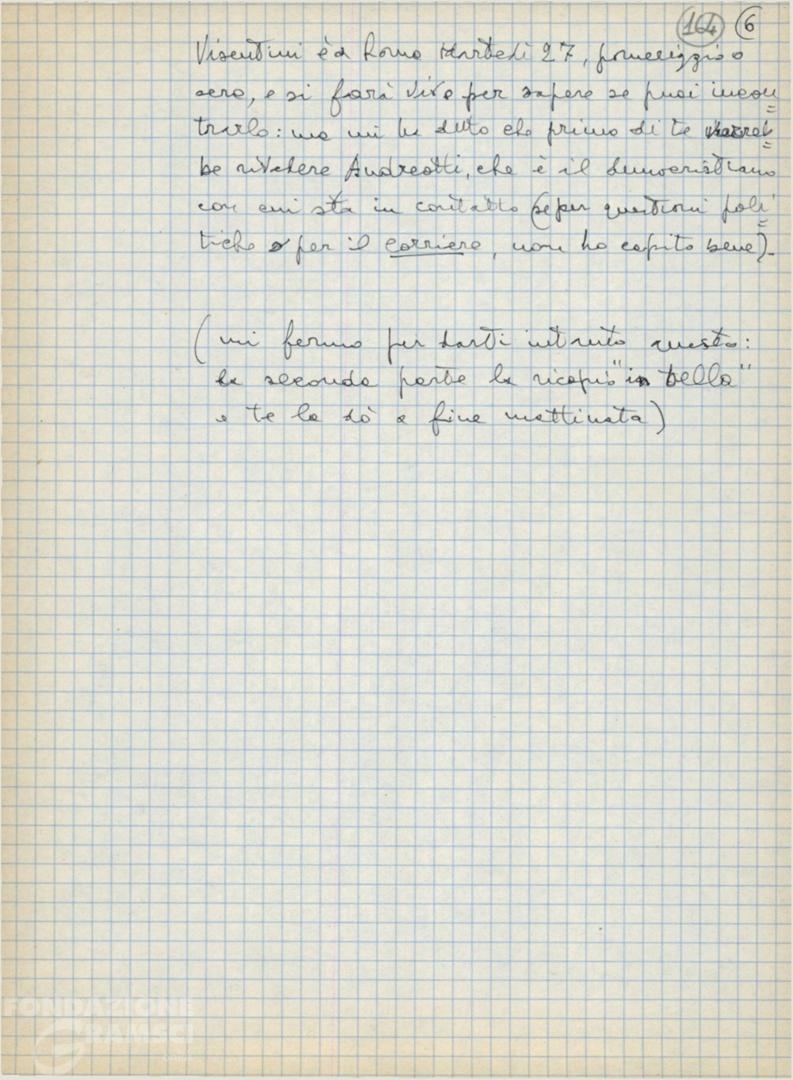 164 6
Visentini è a Roma Martedì 27, pomeriggio o
sera, e si farà vivo per sapere se puoi incon=
trarlo: ma mi ha detto che prima di te vorreb=
be rivedere Andreotti, che è il democristiano
con cui sta in contatto (se per questioni poli=
tiche o per il Corriere, non ho capito bene).
(mi fermo per darti intanto questo:
la seconda parte la ricopio "in bella"
e te la dò a fine mattinata)
FONDAZIONE
GRAMSCI